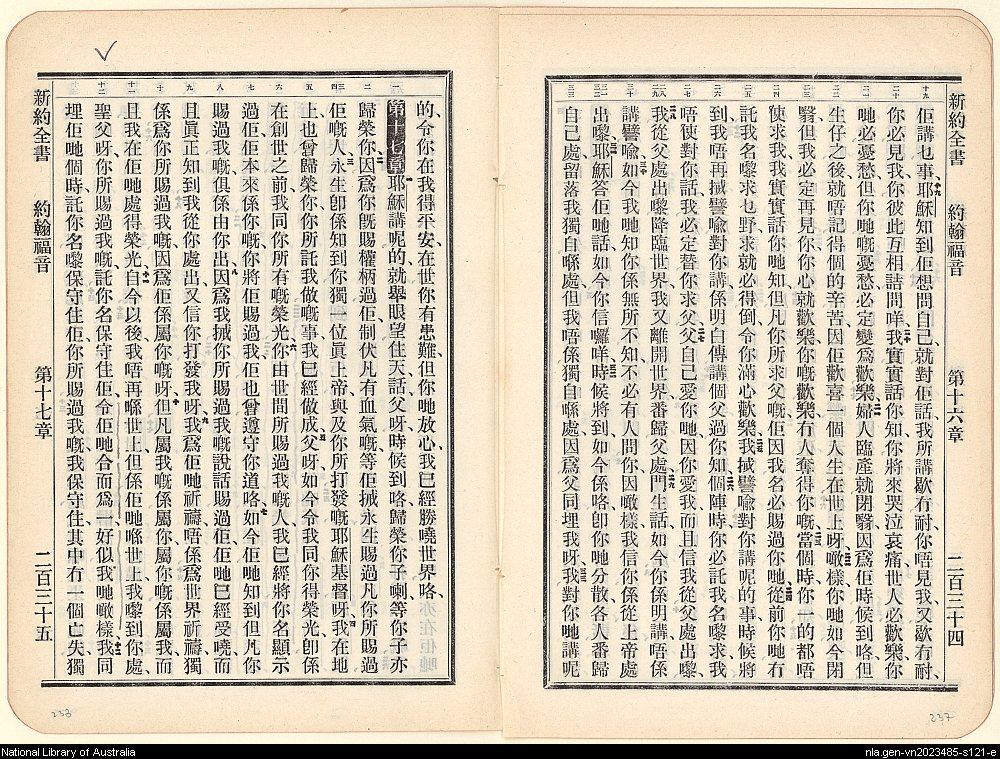 新約全書 約翰福音 第十六章 二百三十四
佢講乜事、耶穌知到佢想問自己、就對佢話、我所講歇冇耐、你唔見我、又歇冇耐、
你必見我、你彼此互相詰問咩、我實實話你知、你將來哭泣哀痛、世人必歡樂、你
哋必憂愁、但你哋嘅憂愁、必定變為歡樂、婦人臨產就閉翳、因為佢時候到咯、但
生仔之後、就唔記得個的辛苦、因佢歡喜一個人生在世上呀、噉樣你哋如今閉
翳、但我必定再見你、你心就歡樂、你嘅歡樂冇人奪得你嘅、當個時、你一的都唔
使求我、我實實話你哋知、但凡你所求父嘅、佢因我名必賜過你哋、從前你哋冇
託我名嚟求乜野、求就必得倒、令你滿心歡樂、我揻譬喻對你講呢的事、時候將
到、我唔再揻譬喻對你講、係明白傳講個父過你知、個陣時你必託我名嚟求、我
唔使對你話、我必定替你求父、父自己愛你哋、因你愛我、而且信我從父處出嚟、
我從父處出嚟、降臨世界、我又離開世界、番歸父處、門生話、如今你係明講、唔係
講譬喻、如今我哋知你係無所不知、不必有人問你、因噉樣我信你係從上帝處
出嚟、耶穌答佢哋話、如今你信囉咩、時候將到、如今係咯、卽你哋分散、各人番歸
自己處、留落我獨自喺處、但我唔係獨自喺處、因為父同埋我呀、我對你哋講呢
237
的、令你在我得平安、在世你有患難、但你哋放心、我已經勝曉世界咯、
第十七章 耶穌講呢的、就舉眼望住天話、父呀、時候到咯、歸榮你子喇、等你子亦
歸榮你、因為你旣賜權柄過佢、制伏凡有血氣嘅、等佢揻永生賜過凡你所賜過
佢嘅人、永生卽係知到你獨一位眞上帝、與及你所打發嘅耶穌基督呀、我在地
上也曾歸榮你、你所託我做嘅事、我已經做成、父呀、如今令我同你得榮光、卽係
在創世之前、我同你所有嘅榮光、你由世間所賜過我嘅人、我已經將你名顯示
過佢、佢本來係你嘅、你將佢賜過我、佢也曾遵守你道咯、如今佢哋知到但凡你
賜過我嘅、俱係由你出、因為我揻你所賜過我嘅說話賜過佢、佢哋已經受曉、而
且眞正知到我從你處出、又信你打發我呀、我為佢哋祈禱、唔係為世界祈禱、獨
係為你所賜過我嘅、因為佢係屬你嘅呀、但凡屬我嘅係屬你、屬你嘅係屬我、而
且我在佢哋處得榮光、自今以後、我唔再喺世上、但係佢哋喺世上、我嚟到你處、
聖父呀、你所賜過我嘅、託你名保守住佢、令佢哋合而為一、好似我哋噉樣、我同
埋佢哋個時、託你名嚟保守住佢、你所賜過我嘅、我保守住、其中冇一個亡失、獨
新約全書 約翰福音 第十七章 二百三十五
National Library of Australia
nla.gen-vn2023485-s121-e